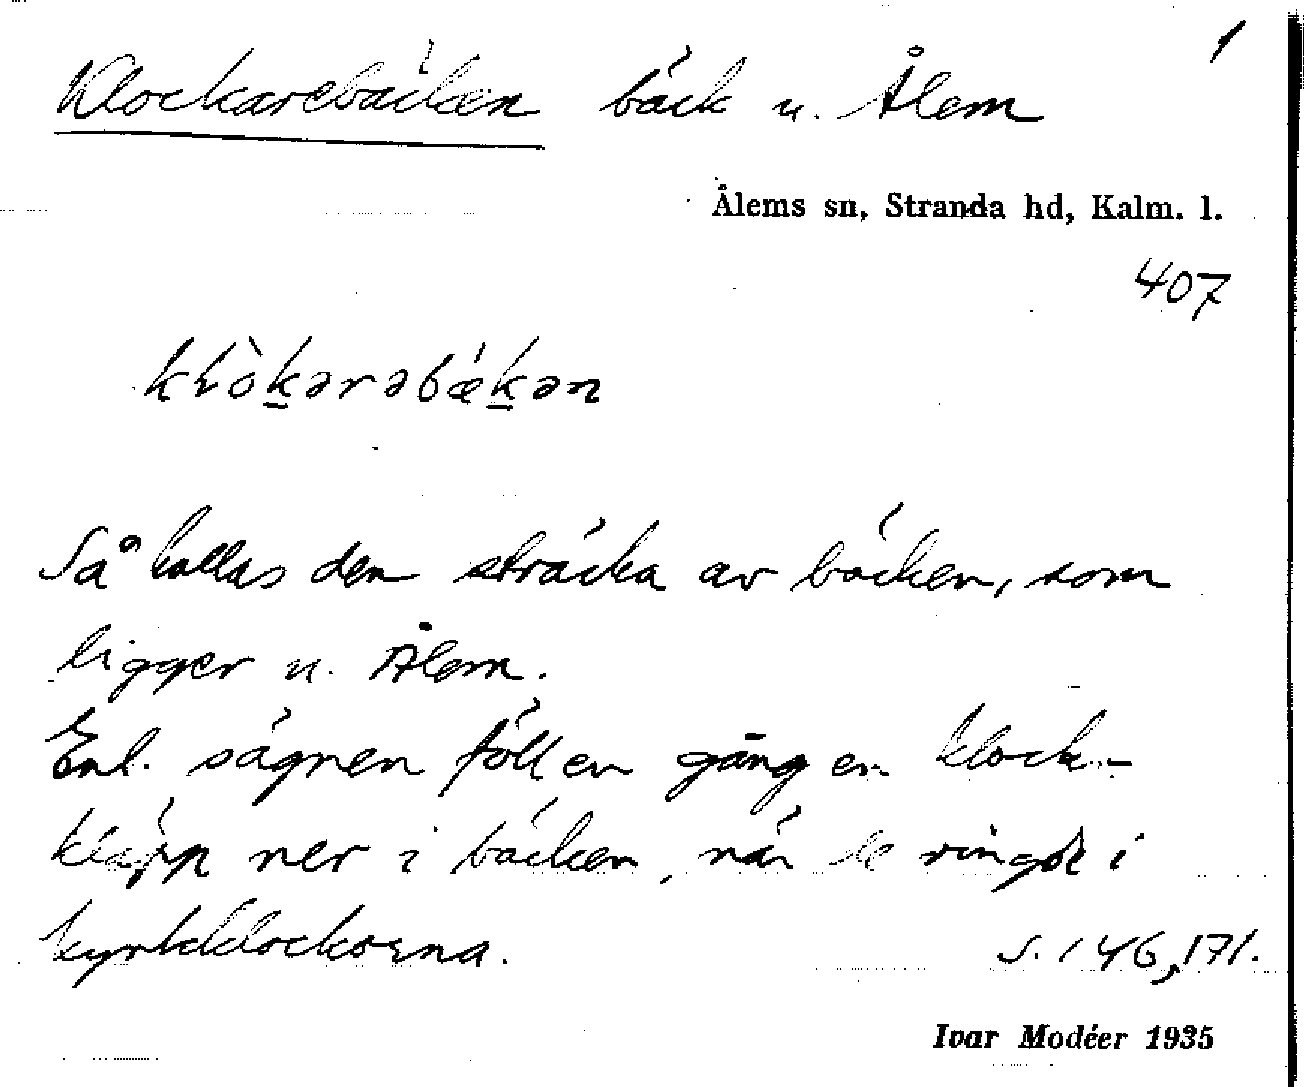 1
Klockarebäcken bäck u. Ålem
Ålems sn, Stranda hd, Kalm. l.
407
klòk̲ərəbǽk̲ən
Så kallas den sträcka av bäcken, som
ligger u. Ålem.
Enl. sägnen föll en gång en klock-
kläpp ner i bäcken, när de ringde i
kyrkklockorna.
s. 146, 171.
Ivar Modéer 1935